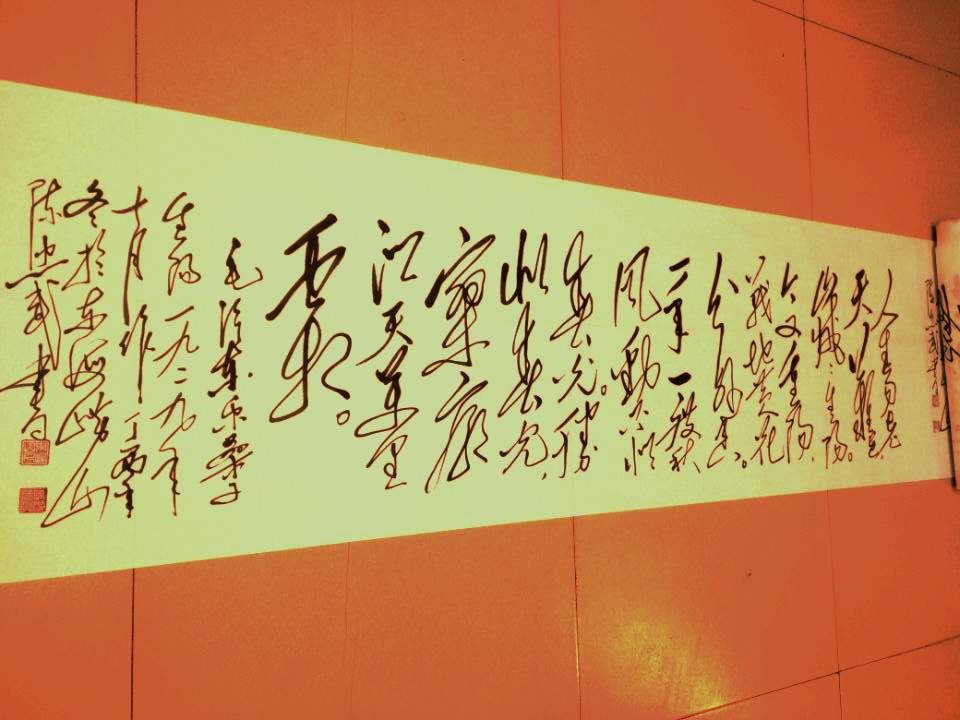 人生易老
天難老,
岁岁重阳。
今又重阳,
戰地黄花
分外香。
一年一度秋
風勁不似
春光。勝
似春光,
寥廓
江天万里
霜。
毛泽东采桑子
重阳一九二九年
十月作丁酉年
冬於东海崂山
陈忠武书